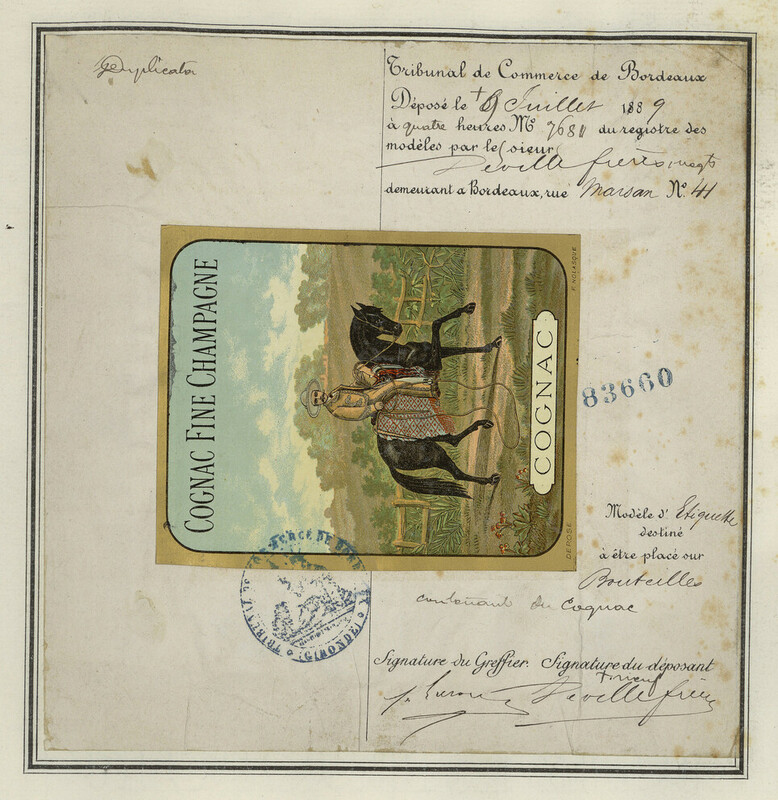 Duplicata
Tribunal de Commerce de Bordeaux
Déposé le 9 Juillet 1889
à quatre heures No 7681 du registre des
modèles par le sieur
Deville frères, negts
demeurant a Bordeaux, rue Marsan No. 41
COGNAC FINE CHAMPAGNE
COGNAC
DÉPOSÉ
F. NOLASQUE
83660
Modèle d' Etiquette
destiné
à être placé sur
Bouteilles
contenant du Cognac
(GIRONDE)
Signature du Greffier. Signature du déposant
+ neuf
Deville frères